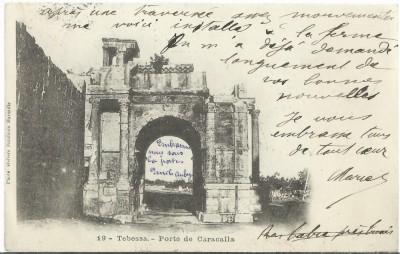 après une traversée assez mouvementée
me voici installé à la ferme
On m'a déjà demandé
longuement de
vos bonnes
nouvelles
Je vous
embrasse tous
de tout cœur
Marcel
Embrassez
sous
la porte
19 - Tebessa. - Porte de Caracalla